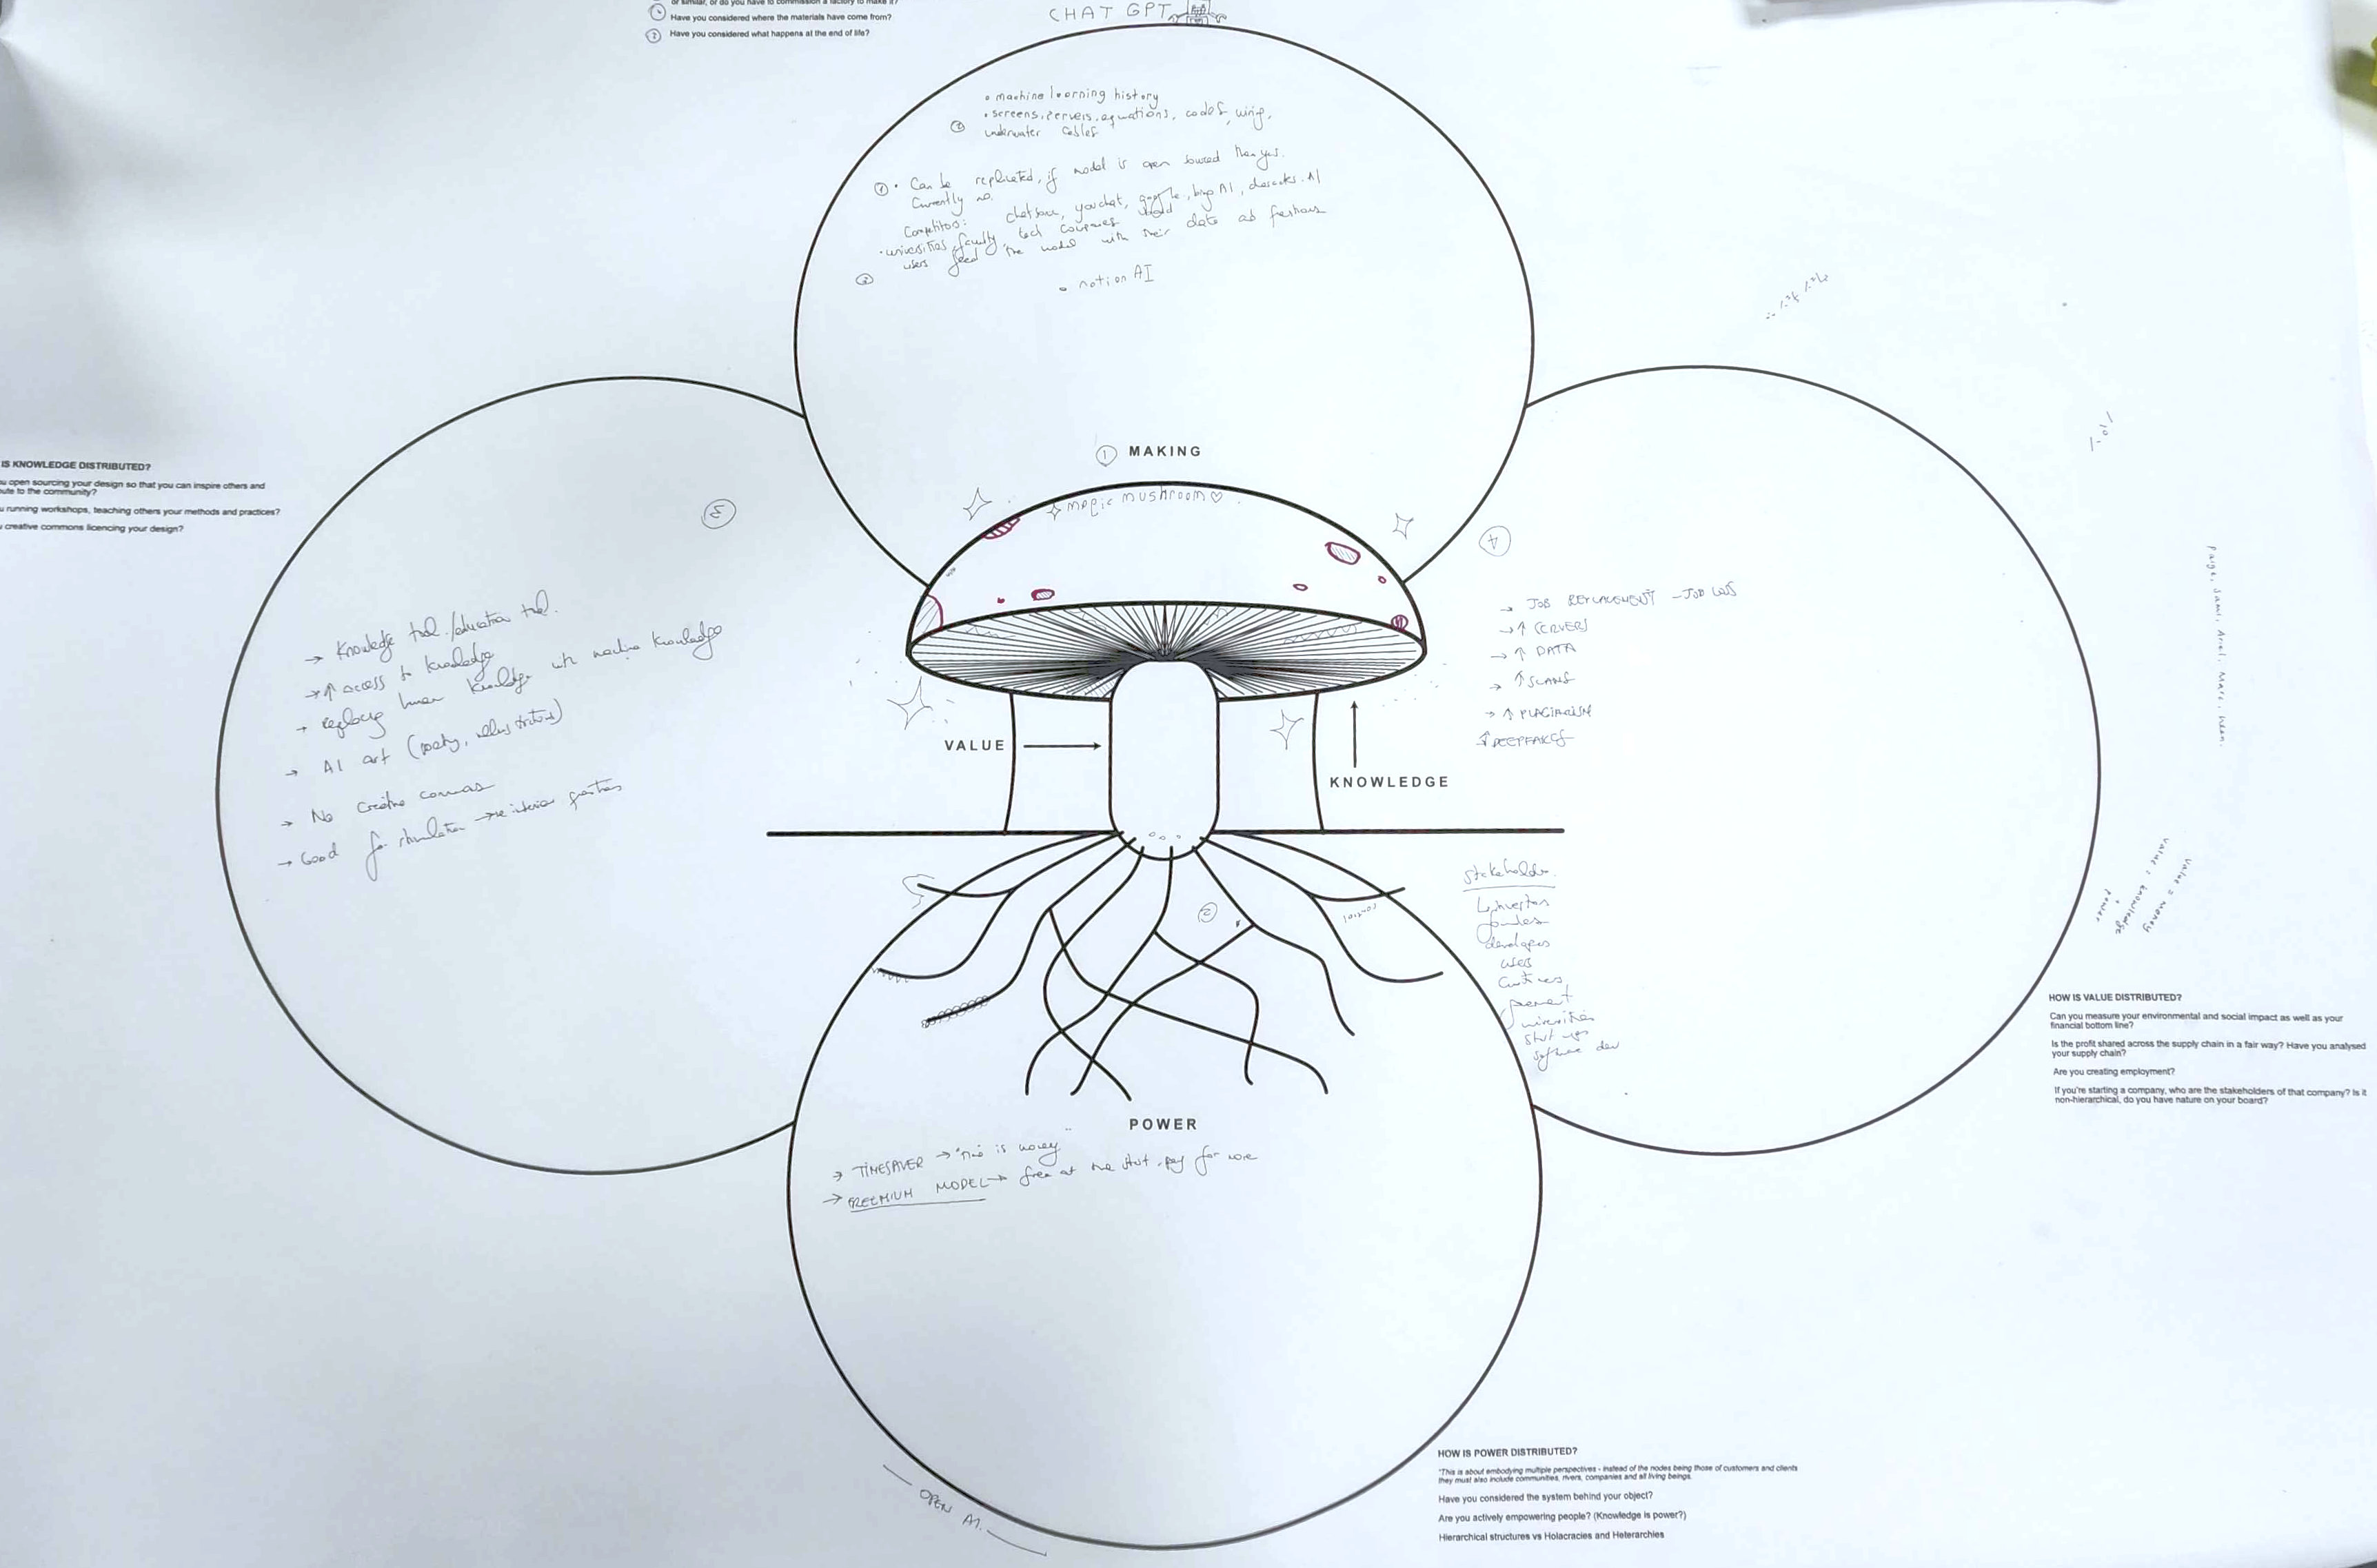 or similar, or do you have to commission a factory to make it?
Have you considered where the materials have come from?
2 Have you considered what happens at the end of life?
CHAT GPT
• machine learning history
• screens, servers, equations, codes, wiring,
underwater cables
① • Can be replicated, if model is open sourced then yes.
Currently no.
Competitors: chatsonic, youchat, google, bing AI,
• universities, faculty, tech companies
users feed the model with their data
• notion AI
① MAKING
magic mushroom ♡
IS KNOWLEDGE DISTRIBUTED?
u open sourcing your design so that you can inspire others and
ute to the community?
u running workshops, teaching others your methods and practices?
u creative commons licencing your design?
3
→ Knowledge tool /education tool.
→ ↑ access to knowledge
→ replacing human knowledge with machine knowledge
→ AI art (poetry, illustrations)
→ No creative commons
→ Good for stimulation →
4
→ JOB REPLACEMENT - JOB LOSS
→ ↑ SERVERS
→ ↑ DATA
→ ↑ SCAMS
→ ↑ PLAGIARISM
↑ DEEPFAKES
VALUE
KNOWLEDGE
2
control
Stakeholder
investors
founders
developers
users
universities
start ups
software dev
POWER
→ TIMESAVER → "time is money"
→ FREEMIUM MODEL → free at the start, pay for more
OPEN AI
value = money
value = knowledge
power
HOW IS VALUE DISTRIBUTED?
Can you measure your environmental and social impact as well as your
financial bottom line?
Is the profit shared across the supply chain in a fair way? Have you analysed
your supply chain?
Are you creating employment?
If you're starting a company, who are the stakeholders of that company? Is it
non-hierarchical, do you have nature on your board?
HOW IS POWER DISTRIBUTED?
"This is about embodying multiple perspectives - instead of the nodes being those of customers and clients
they must also include communities, rivers, companies and all living beings.
Have you considered the system behind your object?
Are you actively empowering people? (Knowledge is power?)
Hierarchical structures vs Holacracies and Heterarchies